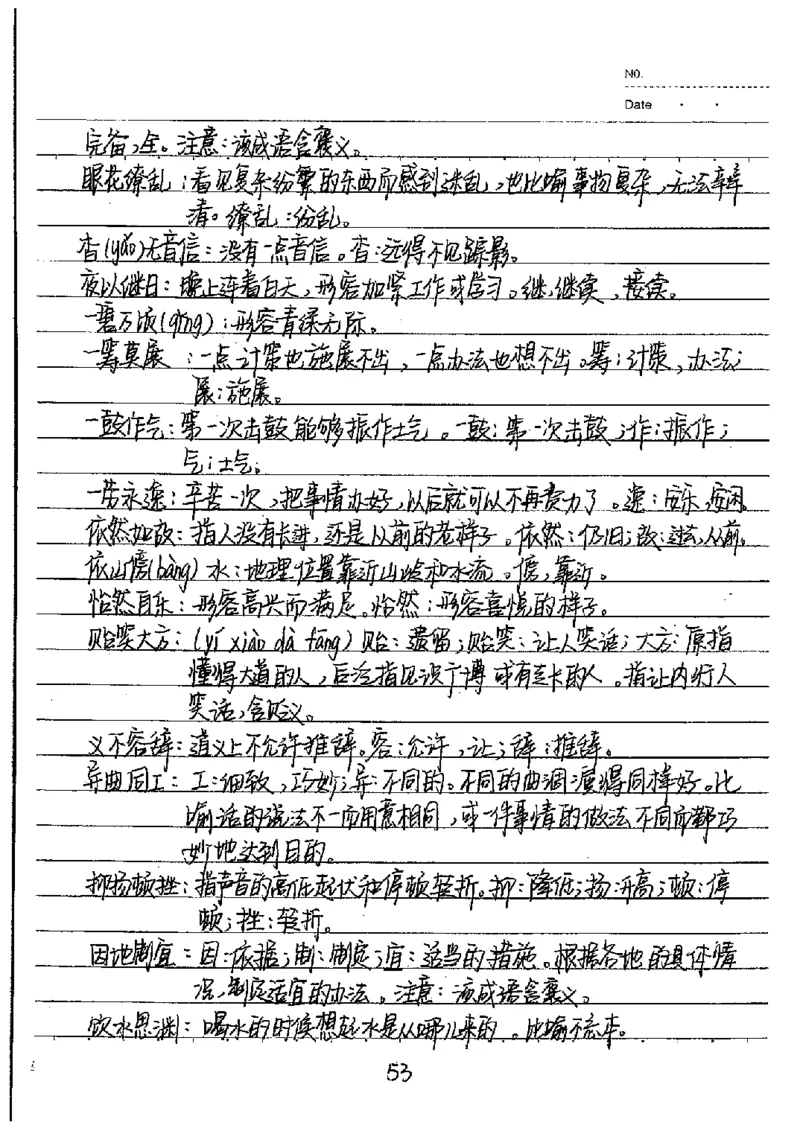 NO.
Date
完备,全。注意:该成语含褒义。
眼花缭乱:看见复杂纷繁的东西而感到迷乱,也比喻事物复杂,无法辛辛
清。缭乱:纷乱。
杳(yǎo)无音信:没有一点音信。杳:远得不见踪影。
夜以继日:晚上连着白天,形容加紧工作或学习。继,继续,接续。
一碧万顷(qǐng):形容青绿无际。
一筹莫展:一点计策也施展不出,一点办法也想不出。筹:计策,办法;
展:施展。
一鼓作气:第一次击鼓能够振作士气。一鼓:第一次击鼓;作:振作;
气:士气。
一劳永逸:辛苦一次,把事情办好,以后就可以不再费力了。逸:安乐,安闲。
依然如故:指人没有长进,还是以前的老样子。依然:仍旧;故:过去,从前。
依山傍(bàng)水:地理位置靠近山岭和水流。傍,靠近。
怡然自乐:形容高兴而满足。怡然:形容喜悦的样子。
贻笑大方:(yí xiào dà fāng)贻:遗留;贻笑:让人笑话;大方:原指
懂得大道的人,后泛指见识广博或有专长的人。指让内行人
笑话,含贬义。
义不容辞:道义上不允许推辞。容:允许,让;辞:推辞。
异曲同工:工:细致,巧妙;异:不同的。不同的曲调演得同样好。比
喻话的说法不一而用意相同,或一件事情的做法不同而都巧
妙地达到目的。
抑扬顿挫:指声音的高低起伏和停顿转折。抑:降低;扬:升高;顿:停
顿;挫:转折。
因地制宜:因:依据;制:制定;宜:适当的措施。根据各地的具体情
况,制定适宜的办法。注意:该成语含褒义。
饮水思渊:喝水的时候想起水是从哪儿来的。比喻不忘本。
53